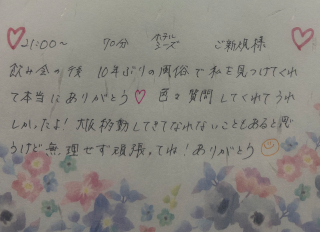 21:00～ 70分 ホテルシーズ ご新規様
飲み会の後 10年ぶりの風俗で私を見つけてくれ
て本当にありがとう♡ 色々質問してくれてうれ
しかったよ！大阪移動してきてなれないこともあると思
うけど無理せず頑張ってね！ありがとう☺